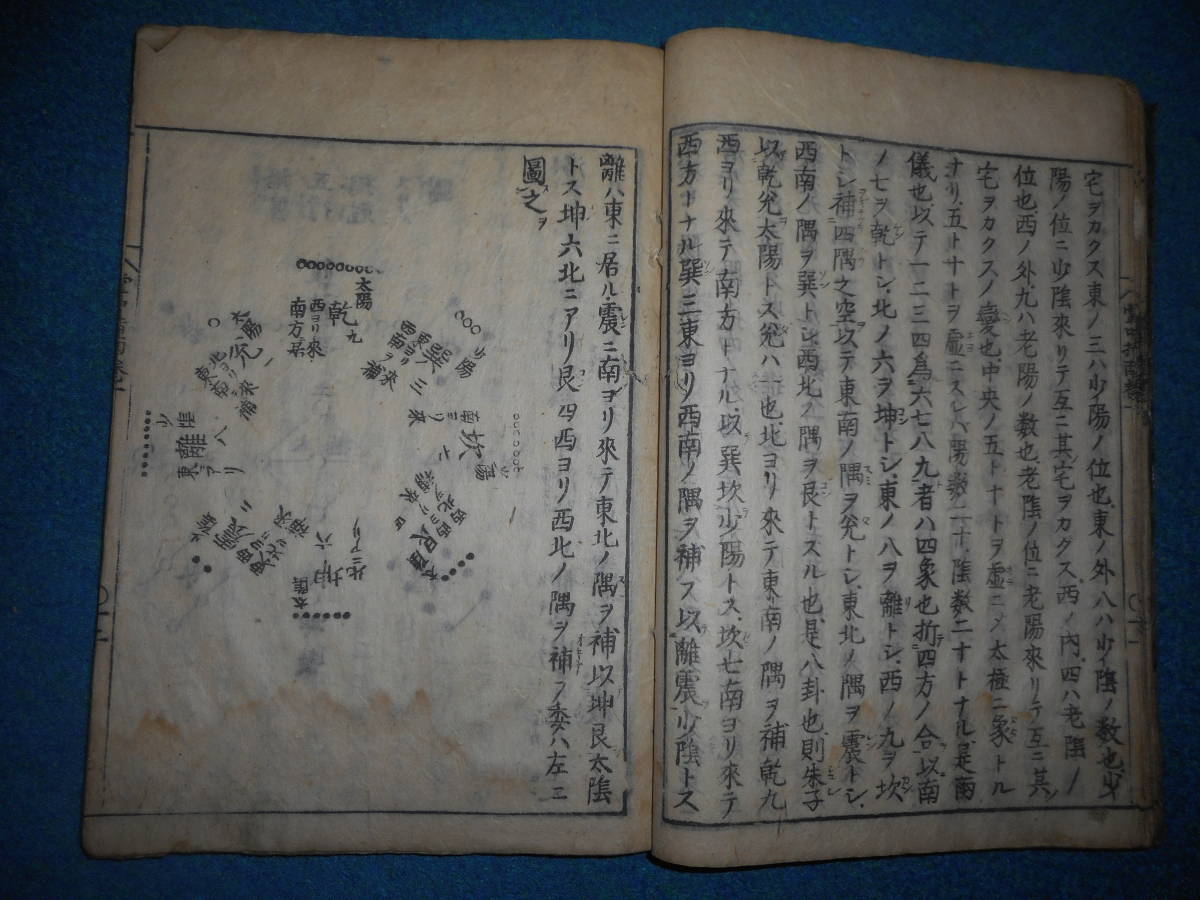 宅ヲカクス東ノ三ハ少陽ノ位也、東ノ外八ハ少陰ノ数也、少
陽ノ位ニ少陰來リテ互ニ其宅ヲカクス西ノ内、四ハ老陰ノ
位也、西ノ外、九ハ老陽ノ数也、老陰ノ位ニ老陽來リテ互ニ其
宅ヲカクスノ變也、中央ノ五ト十トヲ虚ニシメ太極ニ象トル
ナリ、五ト十トヲ虚ニスレハ陽数二十、陰数二十トナル、是兩
儀也、以テ一二三四爲六七八九者ハ四象也析四方ノ合以南
ノ七ヲ乾トシ、北ノ六ヲ坤トシ、東ノ八ヲ離トシ、西ノ九ヲ坎
トシ補四隅之空以テ東南ノ隅ヲ兌トシ、東北ノ隅ヲ震トシ、
西南ノ隅ヲ巽トシ、西北ノ隅ヲ艮トスル也、是八卦也、則朱子
以乾兌太陽トス兌ハ一也、北ヨリ來テ東南ノ隅ヲ補乾九
西ヨリ來テ南方トナル、以巽坎少陽トス、坎七南ヨリ來テ
西方トナル巽三東ヨリ西南ノ隅ヲ補フス以離震少陰トス
離ハ東ニ居ル、震ニ南ヨリ來テ東北ノ隅ヲ補以坤艮太陰
トス坤六北ニアリ艮四西ヨリ西北ノ隅ヲ補フ委ハ左ニ
圖之ヲ
太陽
乾九
西ヨリ來
南方ニ居
少陽
巽三
東ヨリ來
西南ノ補
坎七
南ヨリ來
太陰
艮四
太陰
坤六
北ニアリ
震二
離八
東ニアリ
太陽
兌一
北ヨリ來
東南ノ補